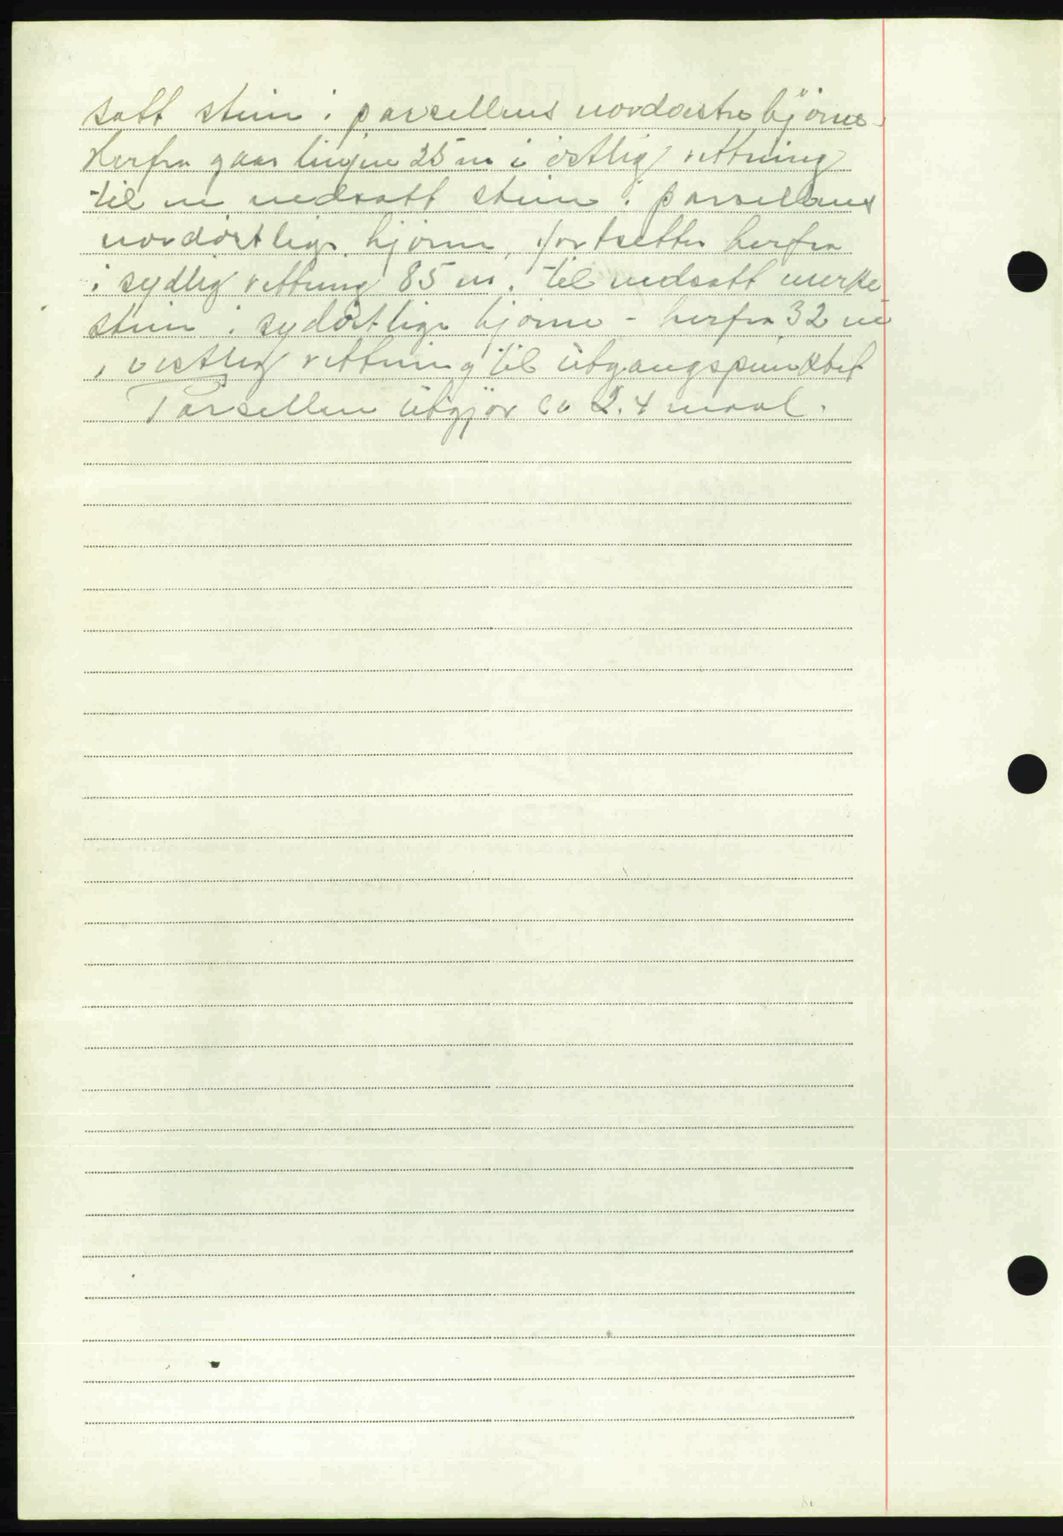 satt stein i parsellens nordvestre hjörne.
Herfra gaar linjen 25 m i östlig rettning
til en nedsatt stein i parsellens
nordöstlige hjörne, fortsetter herfra
i sydlig rettning 85 m. til nedsatt merke
stein i sydöstlige hjörne - herfra 32 m
i vestlig rettning til utgangspunktet
Parsellen utgjör ca 2.4 maal.